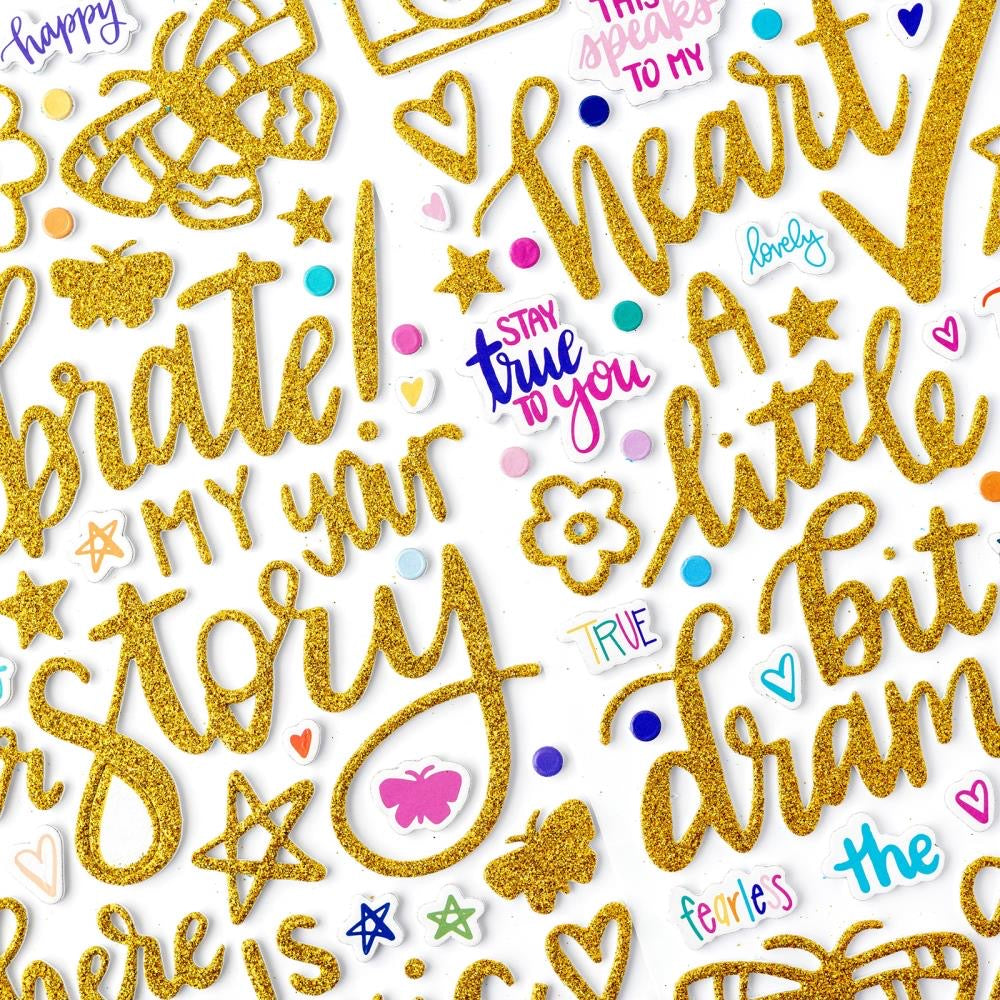 happy
THIS
speaks
TO MY
heart
lovely
STAY
true
TO you
A
little
bit
brate!
MY yair
story
TRUE
dram
the
fearless
here is